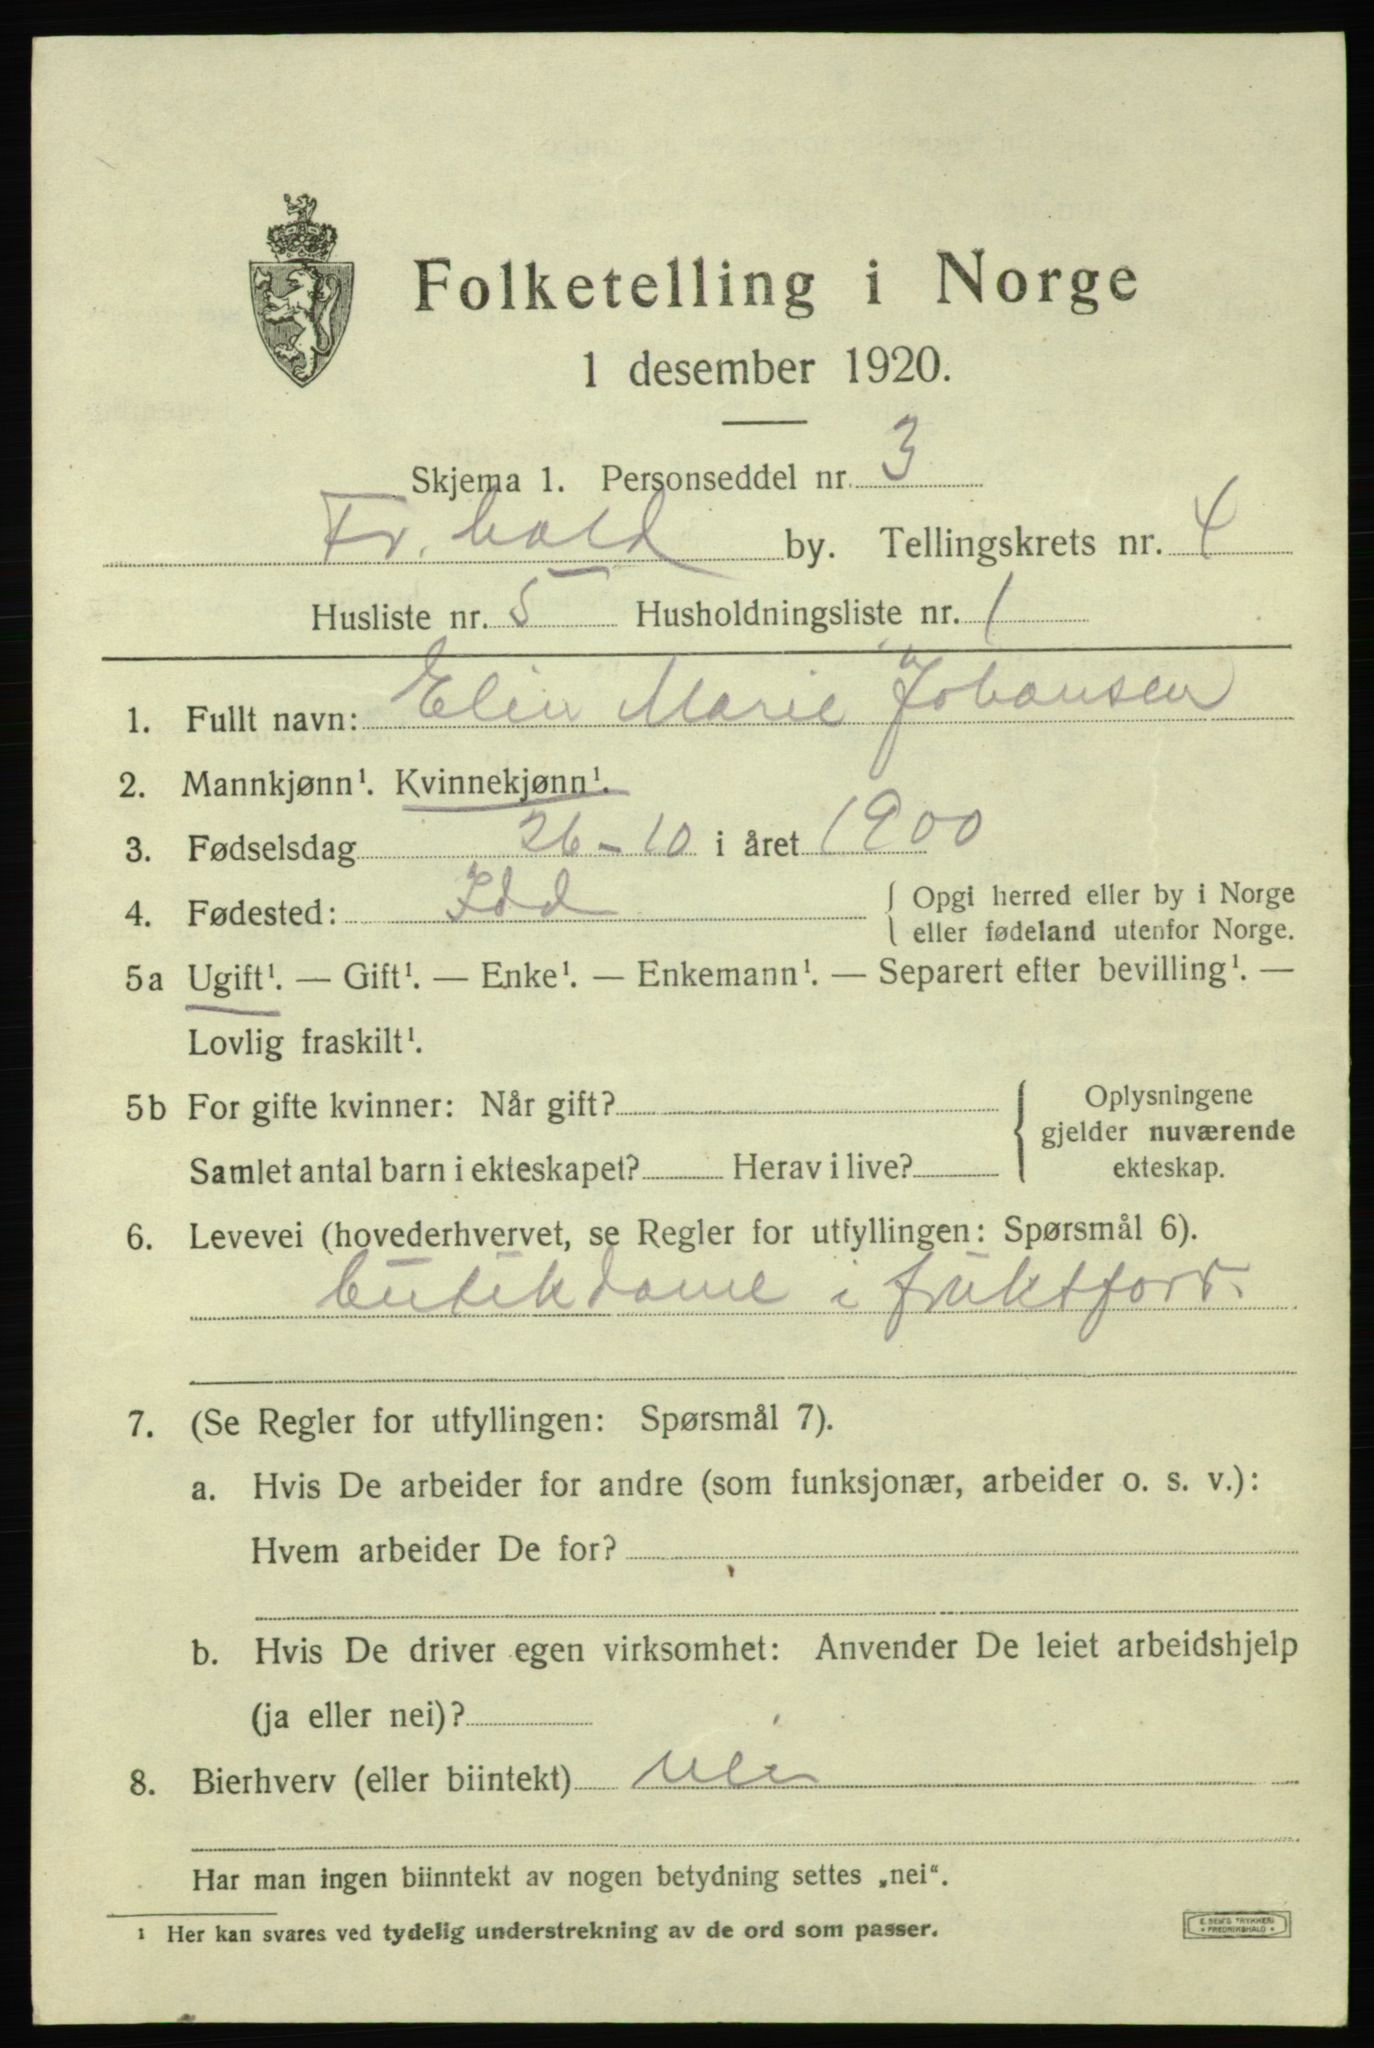 Folketelling i Norge
1 desember 1920.
Skjema 1. Personseddel nr. 3
Fr.hald by. Tellingskrets nr. 4
Husliste nr. 5 Husholdningsliste nr. 1
1. Fullt navn: Elin Marie Johansen
2. Mannkjønn¹. Kvinnekjønn¹.
3. Fødselsdag 26-10 i året 1900
4. Fødested: Idd { Opgi herred eller by i Norge
eller fødeland utenfor Norge.
5a Ugift¹. — Gift¹. — Enke¹. — Enkemann¹. — Separert efter bevilling¹. —
Lovlig fraskilt¹.
5b For gifte kvinner: Når gift? { Oplysningene
gjelder nuværende
Samlet antal barn i ekteskapet? Herav i live? ekteskap.
6. Levevei (hovederhvervet, se Regler for utfyllingen: Spørsmål 6).
butikdame i fruktforr.
7. (Se Regler for utfyllingen: Spørsmål 7).
a. Hvis De arbeider for andre (som funksjonær, arbeider o. s. v.):
Hvem arbeider De for?
b. Hvis De driver egen virksomhet: Anvender De leiet arbeidshjelp
(ja eller nei)?
8. Bierhverv (eller biintekt) nei
Har man ingen biinntekt av nogen betydning settes „nei“.
¹ Her kan svares ved tydelig understrekning av de ord som passer.
E. SEM'S TRYKKERI
• FREDRIKSHALD •